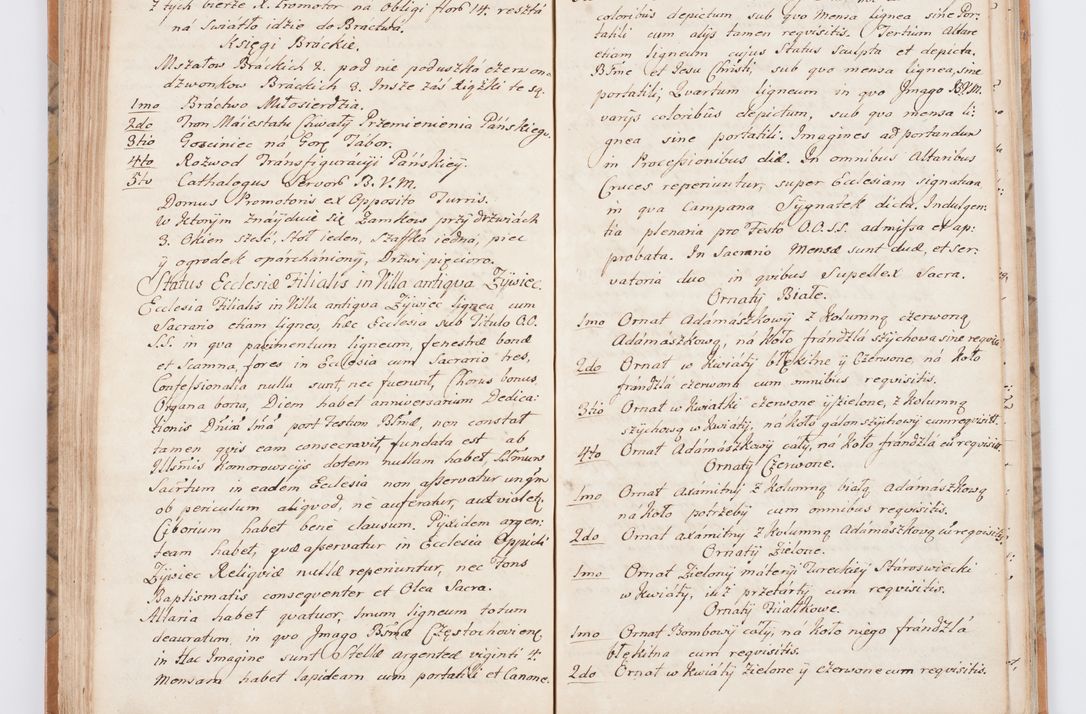 z tych bierze X. Promotor na Obligi flor 14. resztá
ná Swiátło idzie do Bráctwá.
Księgi Bráckie.
Mszałow Bráckich 2. pod nie poduszká czerwon
dzwonkow Bráckich 3. Insze zás Xiążki te są.
1mo Bráctwo Miłosierdzia.
2do Tron Máiestatu Chwały Przemienienia Páńskiego.
3tio Gosciniec ná Gorę Tábor.
4to Rozwod Transfiguracyji Páńskiey.
5to Cathalogus Servor B. V. M.
Domus Promotoris ex Opposito Turris.
w Ktorym znáyduie się Zamkow przy Drzwiách
3. Okien sześć, Stoł ieden, Szaffka iedna, piec
y ogrodek oparchániony, Drzwi pięcioro.
Status Ecclesiæ Filialis in Villa antiqva Zÿwiec.
Ecclesia Filialis in Villa antiqva Zÿwiec lignea cum
Sacrario etiam ligneo, hæc Ecclesia sub Titulo O.O.
S.S. in qva pavimentum ligneum, fenestræ bonæ
et Scamna, fores in Ecclesia cum Sacrario tres,
Confessionalia nulla sunt, nec fuerunt, Chorus bonus
Organa bona, Diem habet anniversarium Dedica:
tionis Dnicã Imã post Festum Bmæ, non constat
tamen qvis eam consecravit, fundata est ab
Illsmis Komorowscijs dotem nullam habet, SSmum
Sacrtum in eadem Ecclesia non asservatur unqm
ob periculum aliqvod, nè auferatur, aut violet.
Cÿborium habet benè clausum. Pÿxidem argen:
team habet, qvæ asservatur in Ecclesia Oppidi
Zÿwiec Reliqviæ nullæ reperiuntur, nec Fons
Baptismatis conseqventer et Olea Sacra.
Altaria habet qvatuor, Imum ligneum totum
deauratum, in qvo Imago Bmæ Częstochovien
in Hac Imagine sunt Stellæ argenteæ viginti 4.
Mensam habet lapideam cum portatili et Canone.
coloribus depictum sub qvo Mensa lignea sine Por:
tatili cum alijs tamen reqvisitis. Tertium Altare
etiam ligneum cujus Status Sculpta et depicta.
B Tmæ et Jesu Christi, sub qvo mensa lignea, sine
portatili; Qvartum ligneum in qvo Imago B.V.M.
varijs coloribus depictum, sub qvo mensa li:
gnea sine portatili. Imagines ad portandum
in Processionibus duæ. In omnibus Altaribus
Cruces reperiuntur, super Ecclesiam signatura
in qva Campana Sygnatek dicta. Indulgen:
tia plenaria pro Festo O.O.SS. admissa et ap:
probata. In Sacrario Mensæ sunt duæ, et Ser:
vatoria duo in qvibus Supellex Sacra.
Ornatÿ Białe.
1mo Ornat Adámaszkowÿ z Kolumną czerwoną
Adámaszkową, ná Koło frándzlá szÿchowa sine reqvis
2do Ornat w Kwiátÿ błękitne ÿ Czerwone, ná Koło
frándzlá czerwona cum omnibus reqvisitis.
3tio Ornat w Kwiatki czerwone ÿ zielone, z Kolumną
szÿchową w Kwiatÿ, ná Koło galon szÿchowÿ cum reqvisit.
4to Ornat Adámaszkowÿ całÿ, ná Koło frándzlá cũ reqvisit.
Ornatÿ Czerwone.
1mo Ornat Axámitnÿ z Kolumną białą, Adámaszkową
ná Koło potrzebÿ cum omnibus reqvisitis.
2do Ornat axámitnÿ z Kolumną Adámászkową cũ reqvisiti
Ornatÿ Zielone.
1mo Ornat Zielonÿ máterÿi Tureckieÿ Stároswiecki
w Kwiátÿ, iuż przetártÿ cum reqvisitis.
Ornátÿ Fiałkowe.
1mo Ornat Bombowÿ cáłÿ, ná Koło niego frándzlá
błękitna cum reqvisitis.
2do Ornat w Kwiátÿ Zielone ÿ czerwone cum reqvisitis.